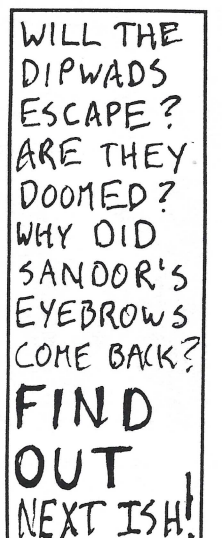 WILL THE
DIPWADS
ESCAPE?
ARE THEY
DOOMED?
WHY DID
SANDOR'S
EYEBROWS
COME BACK?
FIND
OUT
NEXT ISH!